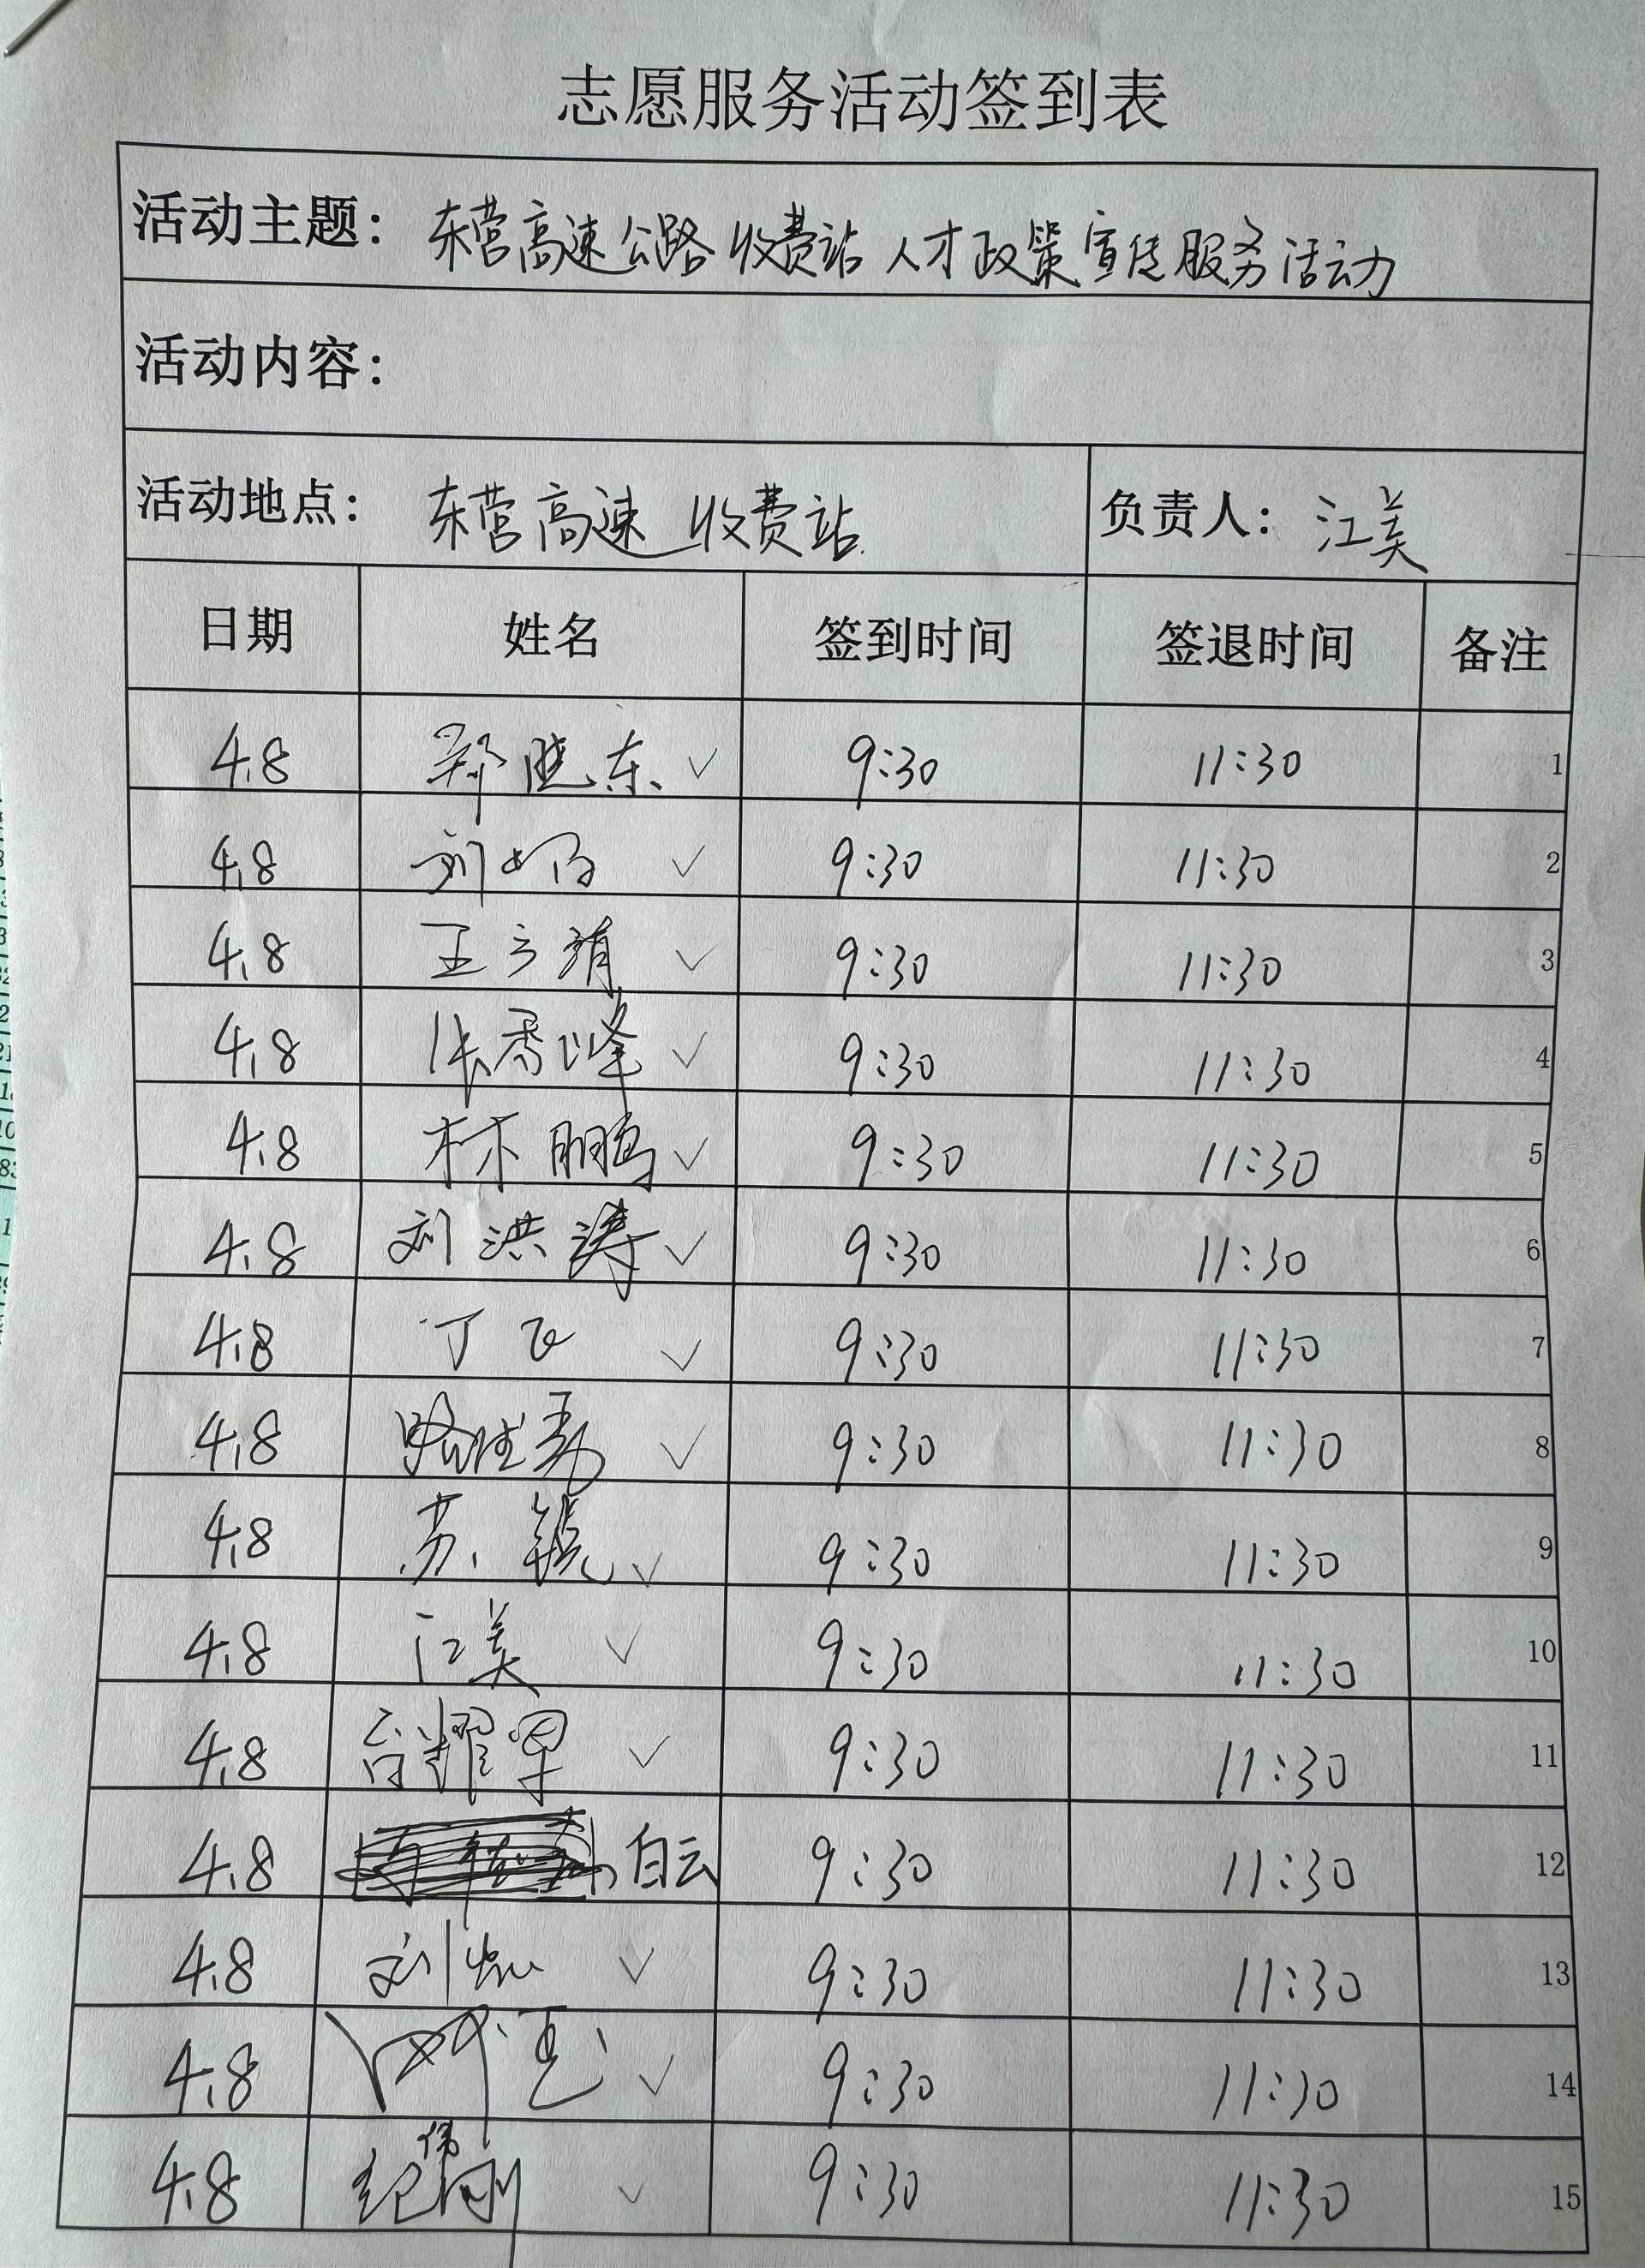 志愿服务活动签到表
活动主题: 东营高速公路收费站人才政策宣传服务活动
活动内容:
活动地点: 东营高速收费站 负责人: 江美
日期 姓名 签到时间 签退时间 备注
4.8 郑晓东 ✓ 9:30 11:30 1
4.8 刘 ✓ 9:30 11:30 2
4.8 王 ✓ 9:30 11:30 3
4.8 张香峰 ✓ 9:30 11:30 4
4.8 林鹏 ✓ 9:30 11:30 5
4.8 刘洪涛 ✓ 9:30 11:30 6
4.8 丁飞 ✓ 9:30 11:30 7
4.8 ✓ 9:30 11:30 8
4.8 苏锐 ✓ 9:30 11:30 9
4.8 江美 ✓ 9:30 11:30 10
4.8 ✓ 9:30 11:30 11
4.8 白云 9:30 11:30 12
4.8 刘 ✓ 9:30 11:30 13
4.8 ✓ 9:30 11:30 14
4.8 纪伟刚 ✓ 9:30 11:30 15